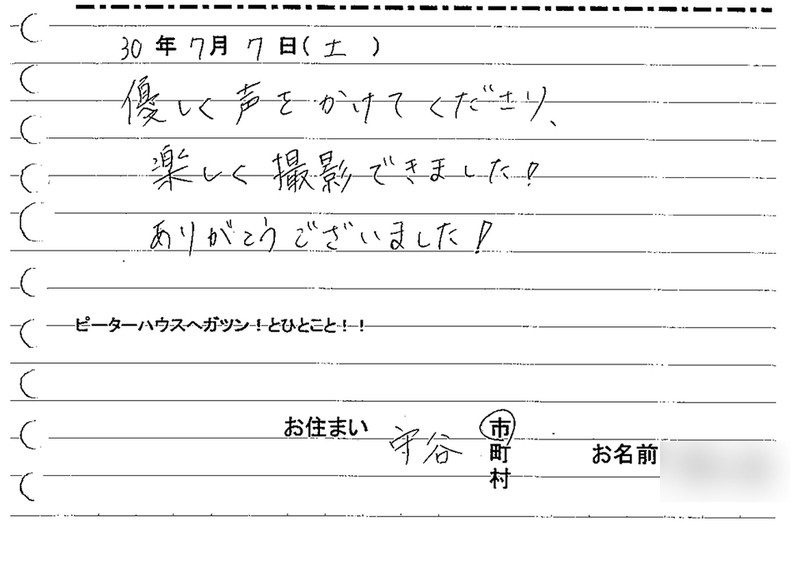 30年7月7日(土)
優しく声をかけてくださり、
楽しく撮影できました!
ありがとうございました!
ピーターハウスへガツン!とひとこと!!
お住まい 守谷 市 お名前
町
村